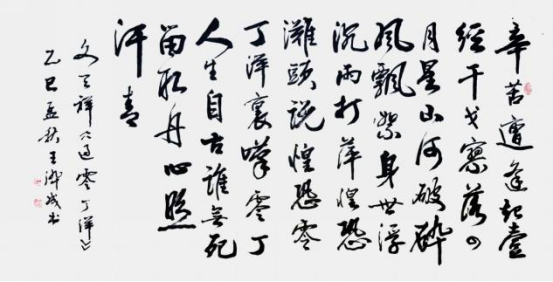 辛苦遭逢起壹
經干戈寥落四
周星山河破碎
風飄絮身世浮
沉雨打萍惶恐
灘頭說惶恐零
丁洋裏嘆零丁
人生自古誰無死
留取丹心照
汗青
文天祥《過零丁洋》
乙巳孟秋王成书